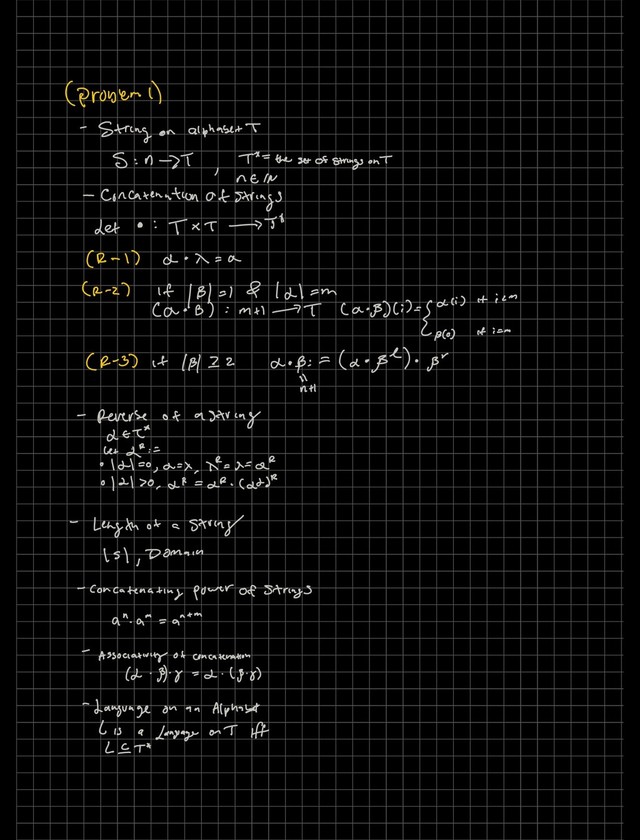 (Problem 1)
- String on alphabet T
S : n → T , T* = the set of strings on T
n ∈ ℕ
- Concatenation of Strings
Let • : T × T → T*
(R-1) α · λ = α
(R-2) if |β| = 1 & |α| = m
(α · β) : m+1 → T (α·β)(i) = { α(i) if i<m
β(0) if i=m
(R-3) if |β| ≥ 2 α · β := (α · β^l) · β^r
n+1
- Reverse of a string
α ∈ T*
Let α^R :=
• |α| = 0, α = λ, λ^R = λ = α^R
• |α| > 0, α^R = α^R · (αl)^R
- Length of a String
|s| , Domain
- Concatenating power of Strings
a^n · a^m = a^(n+m)
- Associativity of concatenation
(α · β) · γ = α · (β · γ)
- Language on an Alphabet
L is a Language on T iff
L ⊆ T*